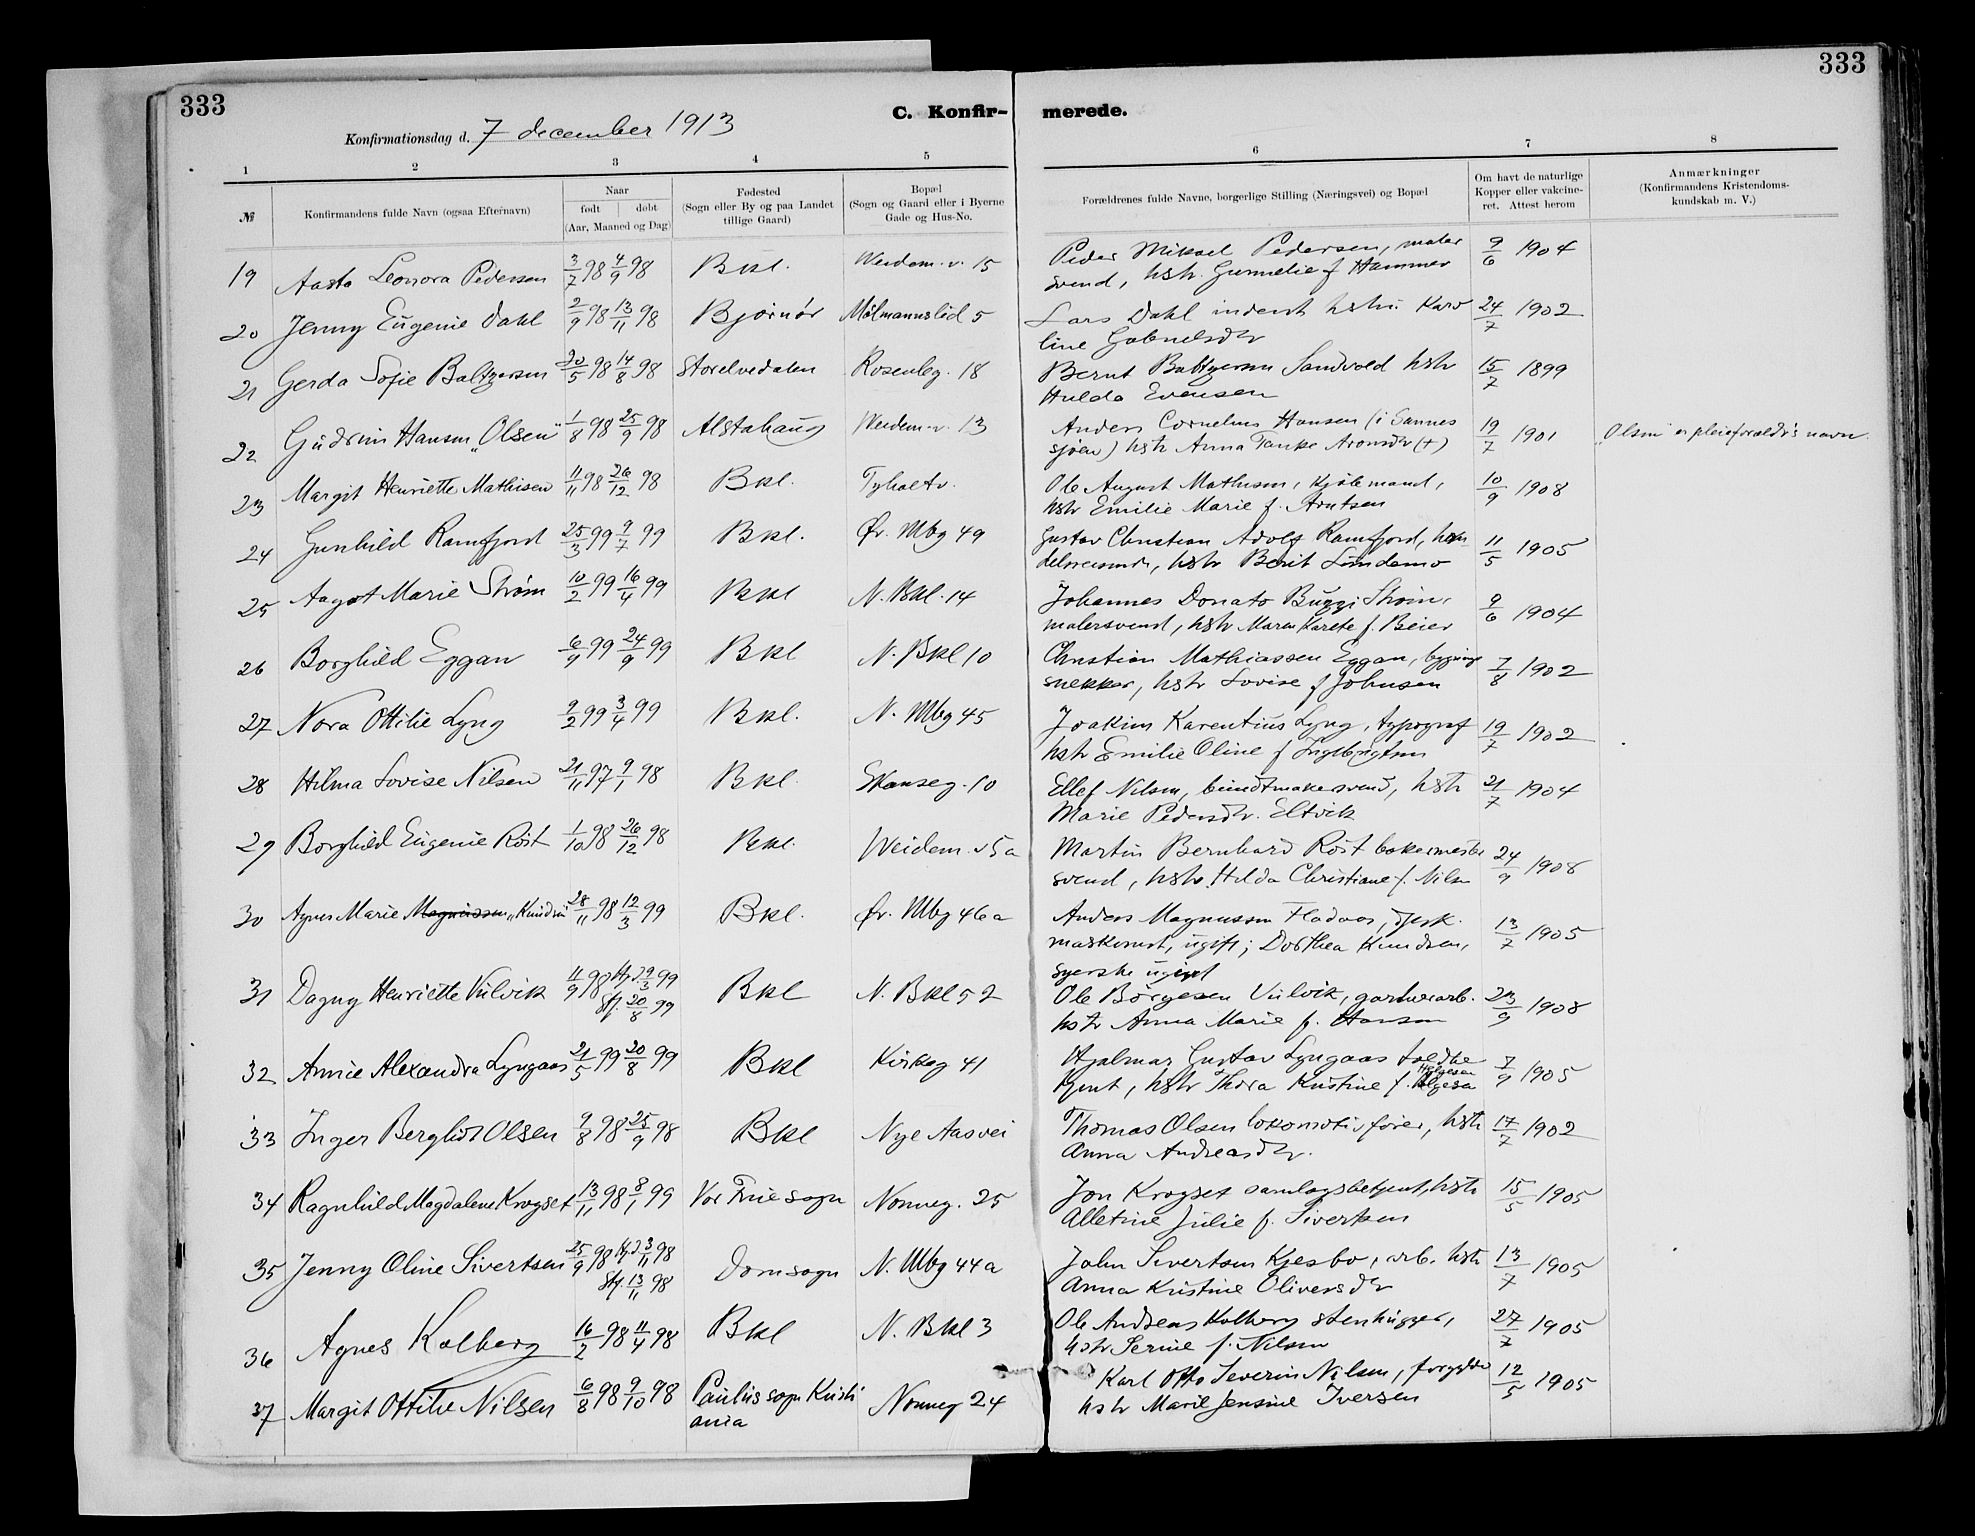 333
333
C. Konfir- merede.
Konfirmationsdag d. 7 december 1913
1 2 3 4 5 6 7 8
№
Konfirmandens fulde Navn (ogsaa Efternavn)
Naar
født døbt
(Aar, Maaned og Dag)
Fødested
(Sogn eller By og paa Landet
tillige Gaard)
Bopæl
(Sogn og Gaard eller i Byerne
Gade og Hus-No.
Forældrenes fulde Navne, borgerlige Stilling (Næringsvei) og Bopæl
Om havt de naturlige
Kopper eller vakcine-
ret. Attest herom
Anmærkninger
(Konfirmandens Kristendoms-
kundskab m. V.)
19 Aasta Leonora Pedersen 3/7 98 4/9 98 Bkl. Weidem. v. 15 Peder Mikael Pedersen, maler 9/6 1904
svend, hstr. Gunnelie f Hammer
20 Jenny Eugenie Dahl 2/9 98 13/11 98 Bjørnør Målmannsled 5 Lars Dahl hstr. Karo 24/7 1902
line Gabrielsdtr
21 Gerda Sofie Baltzersen 20/5 98 14/8 98 Storelvedalen Rosenbg. 18 Bernt Baltzersen Sandvold hstr 15/7 1899
Hulda Evensen
22 Gudrun Hansen „Olsen" 1/8 98 25/9 98 Alstahaug Weidem. v. 13 Anders Cornelius Hansen (i Sannes 19/7 1901 „Olsen" er pleieforældr's navn.
sjøen) hstr Anna Tanke Aronsdtr (+)
23 Margit Henriette Mathisen 11/11 98 26/12 98 Bkl. Tyholtv. Ole August Mathisen, kjølemand, 10/9 1908
hstr Emilie Marie f. Arntsen
24 Gunhild Ramfjord 25/3 99 9/7 99 Bkl. Ør. Mbg 49 Gustav Christian Adolf Ramfjord, han 11/5 1905
delsreisende, hstr Berit Lundemo
25 Aagot Marie Strøm 10/2 99 16/4 99 Bkl N. Bkl. 14 Johannes Donato Buggi Strøm, 9/6 1904
malersvend, hstr Maren Karete f. Beier
26 Borghild Eggan 6/9 99 24/9 99 Bkl N. Bkl 10 Christian Mathiassen Eggan, bygnings 7/8 1902
snekker, hstr Lovise f Johnsen
27 Nora Ottilie Lyng 9/2 99 3/4 99 Bkl. N. Mbg 45 Joakim Karentius Lyng, typograf 19/7 1902
hstr Emilie Oline f Ingebrigtsen
28 Hilma Lovise Nilsen 21/11 97 9/1 98 Bkl. Skanseg. 10 Ellef Nilsen, bundtmakersvend, hstr 21/7 1904
Marie Pedersdtr. Eltvik
29 Borghild Eugenie Röst 1/10 98 26/12 98 Bkl. Weidem. v 5a Martin Bernhard Röst bakermester 24/9 1908
svend, hstr Hilda Christiane f. Nilsen
30 Agnes Marie Magnussen „Knudsen" 28/11 98 12/3 99 Bkl. Ør. Mbg 46a Anders Magnussen Fladaas, 13/7 1905
maskinist, ugift; Dorthea Knudsen,
syerske ugift
31 Dagny Henriette Vulvik 11/9 98 hj.d 19/3 99 Bkl N. Bkl 52 Ole Børgesen Vulvik, garverarb. 23/9 1908
stf. 20/8 99 hstr Anna Marie f. Hansen
32 Annie Alexandra Lyngaas 21/5 99 20/8 99 Bkl Kirkeg 41 Hjalmar Gustav Lyngaas toldbe 7/9 1905
tjent, hstr Thora Kristine f. Helgesen
33 Inger Bergliot Olsen 9/8 98 25/9 98 Bkl Nye Aasvei Thomas Olsen lokomotivfører, hstr 17/7 1902
Anna Andreasdtr.
34 Ragnhild Magdalene Krogset 13/11 98 8/1 99 Vor Frue sogn Nonneg. 25 Jon Krogset samlagsbetjent, hstr 15/5 1905
Alletine Julie f. Sivertsen
35 Jenny Oline Sivertsen 25/9 98 hj.d 3/11 98 Domsogn N. Mbg 44a John Sivertsen Kjesbo, arb. hstr 13/7 1905
stf 13/11 98 Anna Kristine Oliversdtr
36 Agnes Kolberg 16/2 98 11/4 98 Bkl N. Bkl 3 Ole Andreas Kolberg stenhugger, 27/7 1905
hstr Serine f. Nilsen
37 Margit Ottilie Nilsen 6/8 98 9/10 98 Paulus sogn Kristi Nonneg 24 Karl Otto Severin Nilsen, forgylder 12/5 1905
ania hstr Marie Jensine Iversen